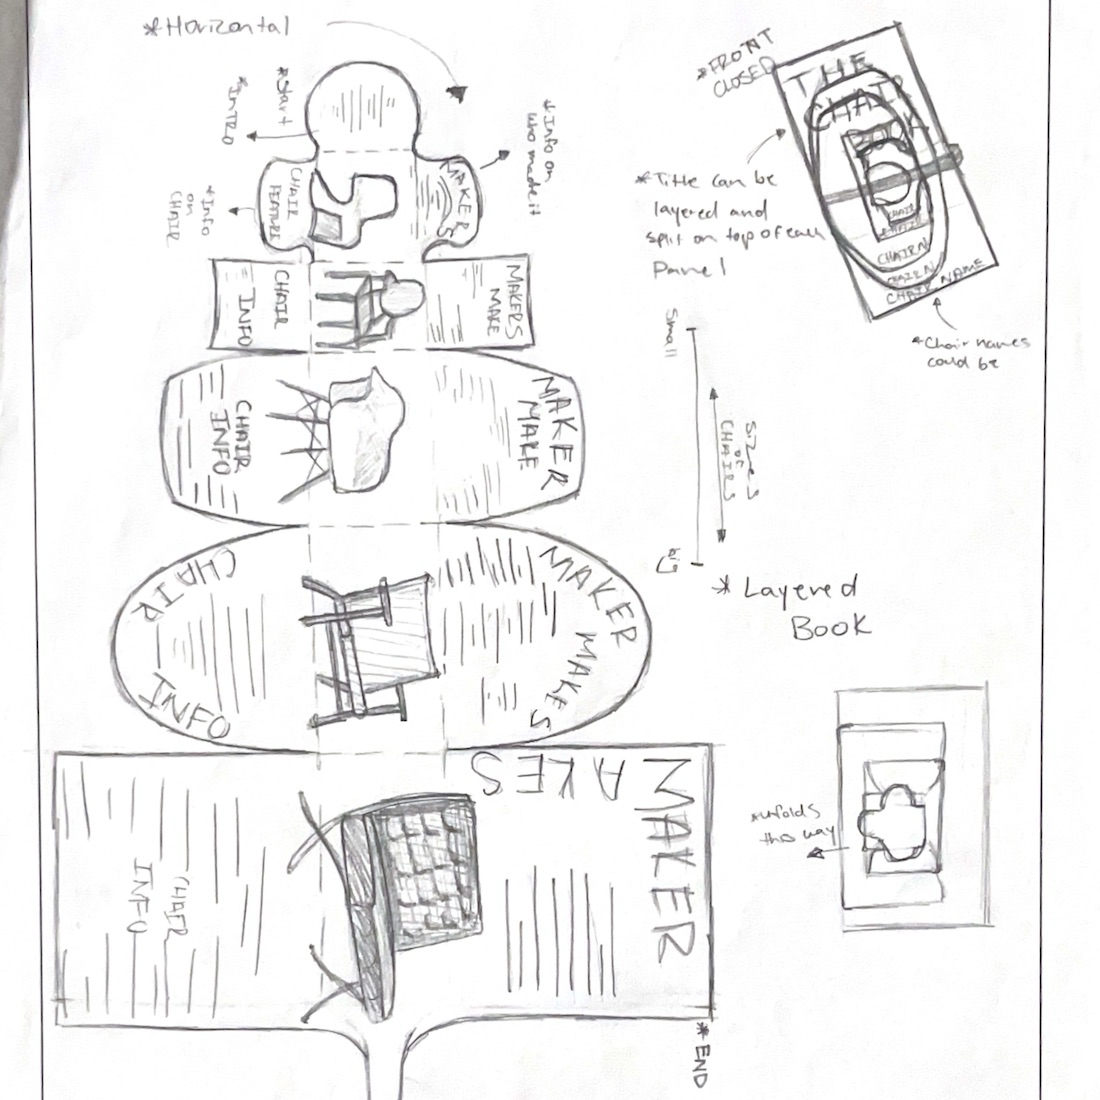 *Horizontal
*Start
*INTRO
*Info on
who made it
*Info
on
CHAIR
CHAIR
FEATURE
MAKER
CHAIR
INFO
MAKERS
MAKE
CHAIR
INFO
MAKER
MAKE
CHAIR
INFO
MAKER
MAKES
CHAIR
INFO
MAKER
MAKES
*END
*FRONT
CLOSED
THE
CHAIR
BOOK
CHAIR
CHAIR N
CHAIR N
CHAIR NAME
*Title can be
layered and
split on top of each
Panel
*Chair names
could be
Small
Big
Sizes
of
CHAIRS
*Layered
Book
*unfolds
this way